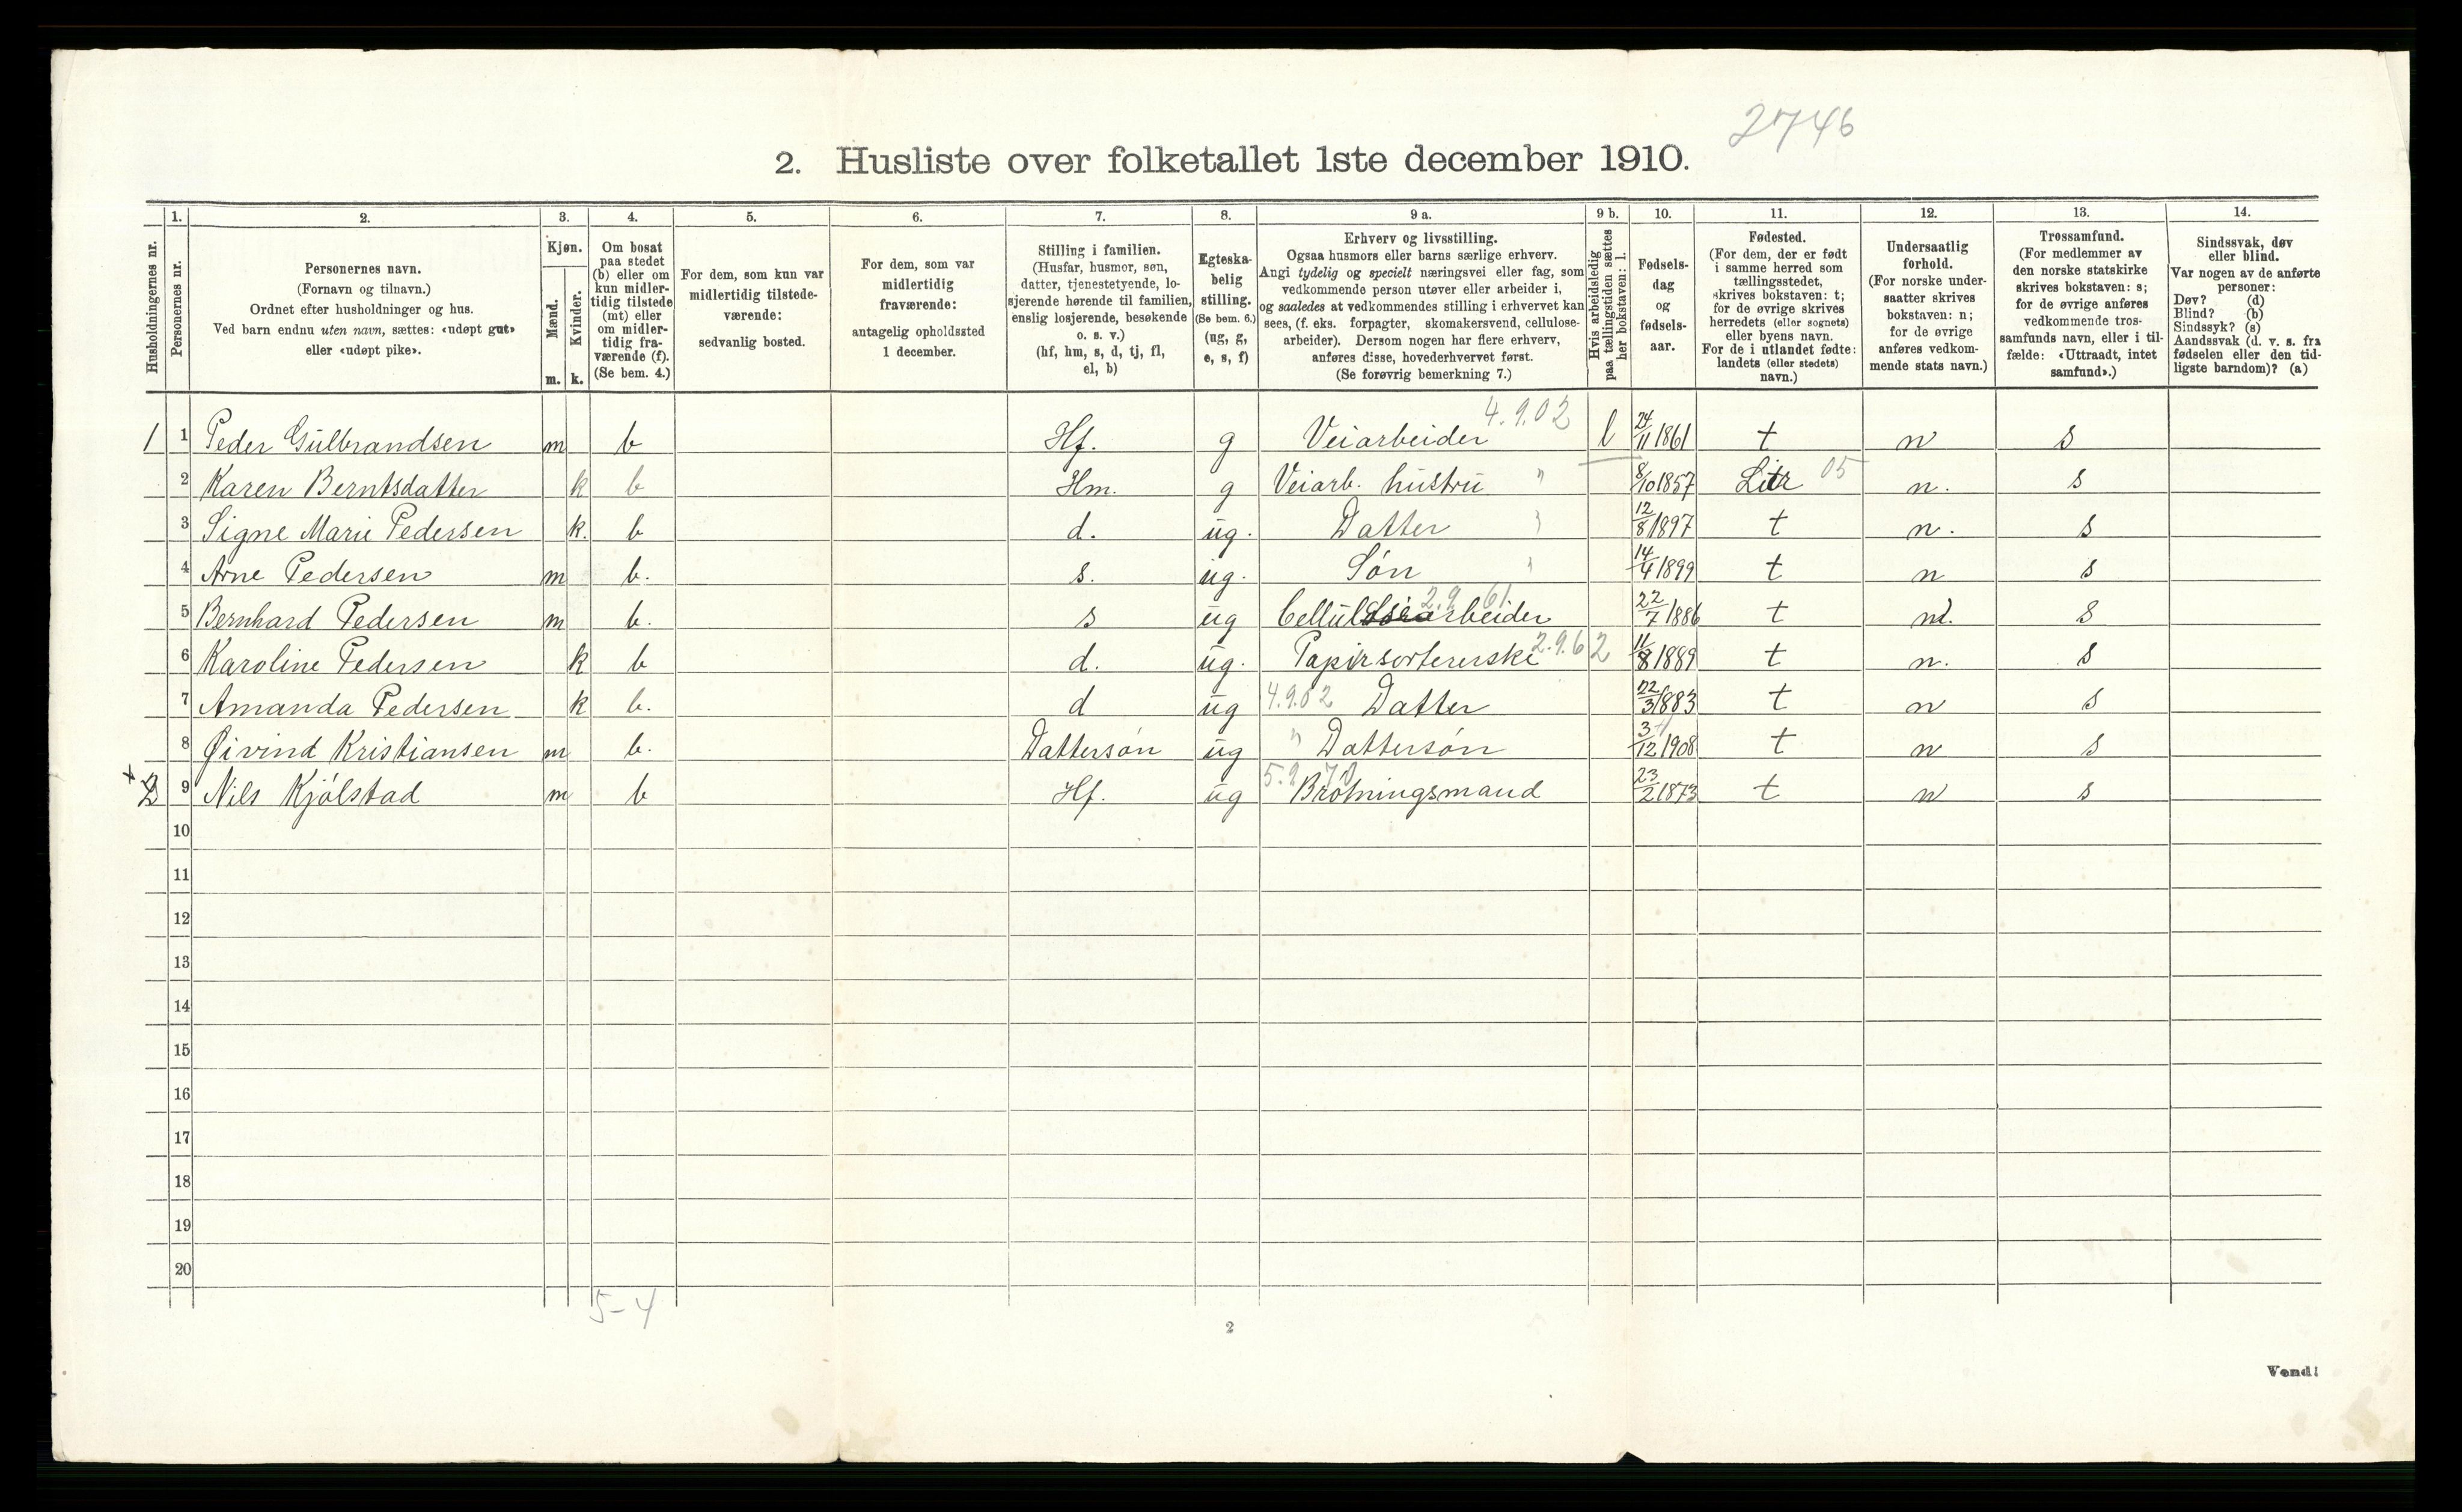 2746
2. Husliste over folketallet 1ste december 1910.
Husholdningernes nr.
1. Personernes nr.
2. Personernes navn. (Fornavn og tilnavn.) Ordnet efter husholdninger og hus. Ved barn endnu uten navn, sættes: «udøpt gut» eller «udøpt pike».
3. Kjøn. Mænd. m. Kvinder. k.
4. Om bosat paa stedet (b) eller om kun midlertidig tilstede (mt) eller om midlertidig fraværende (f). (Se bem. 4.)
5. For dem, som kun var midlertidig tilstedeværende: sedvanlig bosted.
6. For dem, som var midlertidig fraværende: antagelig opholdssted 1 december.
7. Stilling i familien. (Husfar, husmor, søn, datter, tjenestetyende, losjerende hørende til familien, enslig losjerende, besøkende o. s. v.) (hf, hm, s, d, tj, fl, el, b)
8. Egteskabelig stilling. (Se bem. 6.) (ug, g, e, s, f)
9 a. Erhverv og livsstilling. Ogsaa husmors eller barns særlige erhverv. Angi tydelig og specielt næringsvei eller fag, som vedkommende person utøver eller arbeider i, og saaledes at vedkommendes stilling i erhvervet kan sees, (f. eks. forpagter, skomakersvend, cellulosearbeider). Dersom nogen har flere erhverv, anføres disse, hovederhvervet først. (Se forøvrig bemerkning 7.)
9 b. Hvis arbeidsledig paa tællingstiden sættes her bokstaven: l.
10. Fødselsdag og fødselsaar.
11. Fødested. (For dem, der er født i samme herred som tællingsstedet, skrives bokstaven: t; for de øvrige skrives herredets (eller sognets) eller byens navn. For de i utlandet fødte: landets (eller stedets) navn.)
12. Undersaatlig forhold. (For norske undersaatter skrives bokstaven: n; for de øvrige anføres vedkommende stats navn.)
13. Trossamfund. (For medlemmer av den norske statskirke skrives bokstaven: s; for de øvrige anføres vedkommende trossamfunds navn, eller i tilfælde: «Uttraadt, intet samfund».)
14. Sindssvak, døv eller blind. Var nogen av de anførte personer: Døv? (d) Blind? (b) Sindssyk? (s) Aandssvak (d. v. s. fra fødselen eller den tidligste barndom)? (a)
1 1 Peder Gulbrandsen m b Hf. g Veiarbeider 4.9.02 l 24/11 1861 t n s
2 Karen Berntsdatter k b Hm. g Veiarb. hustru " 8/10 1857 Litr 05 n. s
3 Signe Marie Pedersen k. b d. ug. Datter " 12/8 1897 t n. s
4 Arne Pedersen m b. s. ug. Søn " 14/4 1899 t n s
5 Bernhard Pedersen m b. s ug Cellulosearbeider 2.9 61 22/7 1886 t n. s
6 Karoline Pedersen k b d. ug. Papirsortererske 2.9.62 11/8 1889 t n. s
7 Amanda Pedersen k b. d ug 4.9.02 Datter 22/3 1883 t n s
8 Øivind Kristiansen m b. Dattersøn ug " Dattersøn 3/12 1908 t n s
x 2 9 Nils Kjølstad m b Hf. ug 5.2 70 Brøtningsmand 23/2 1873 t n s
10
11
12
13
14
15
16
17
18
19
20
5-4
2
Vend!